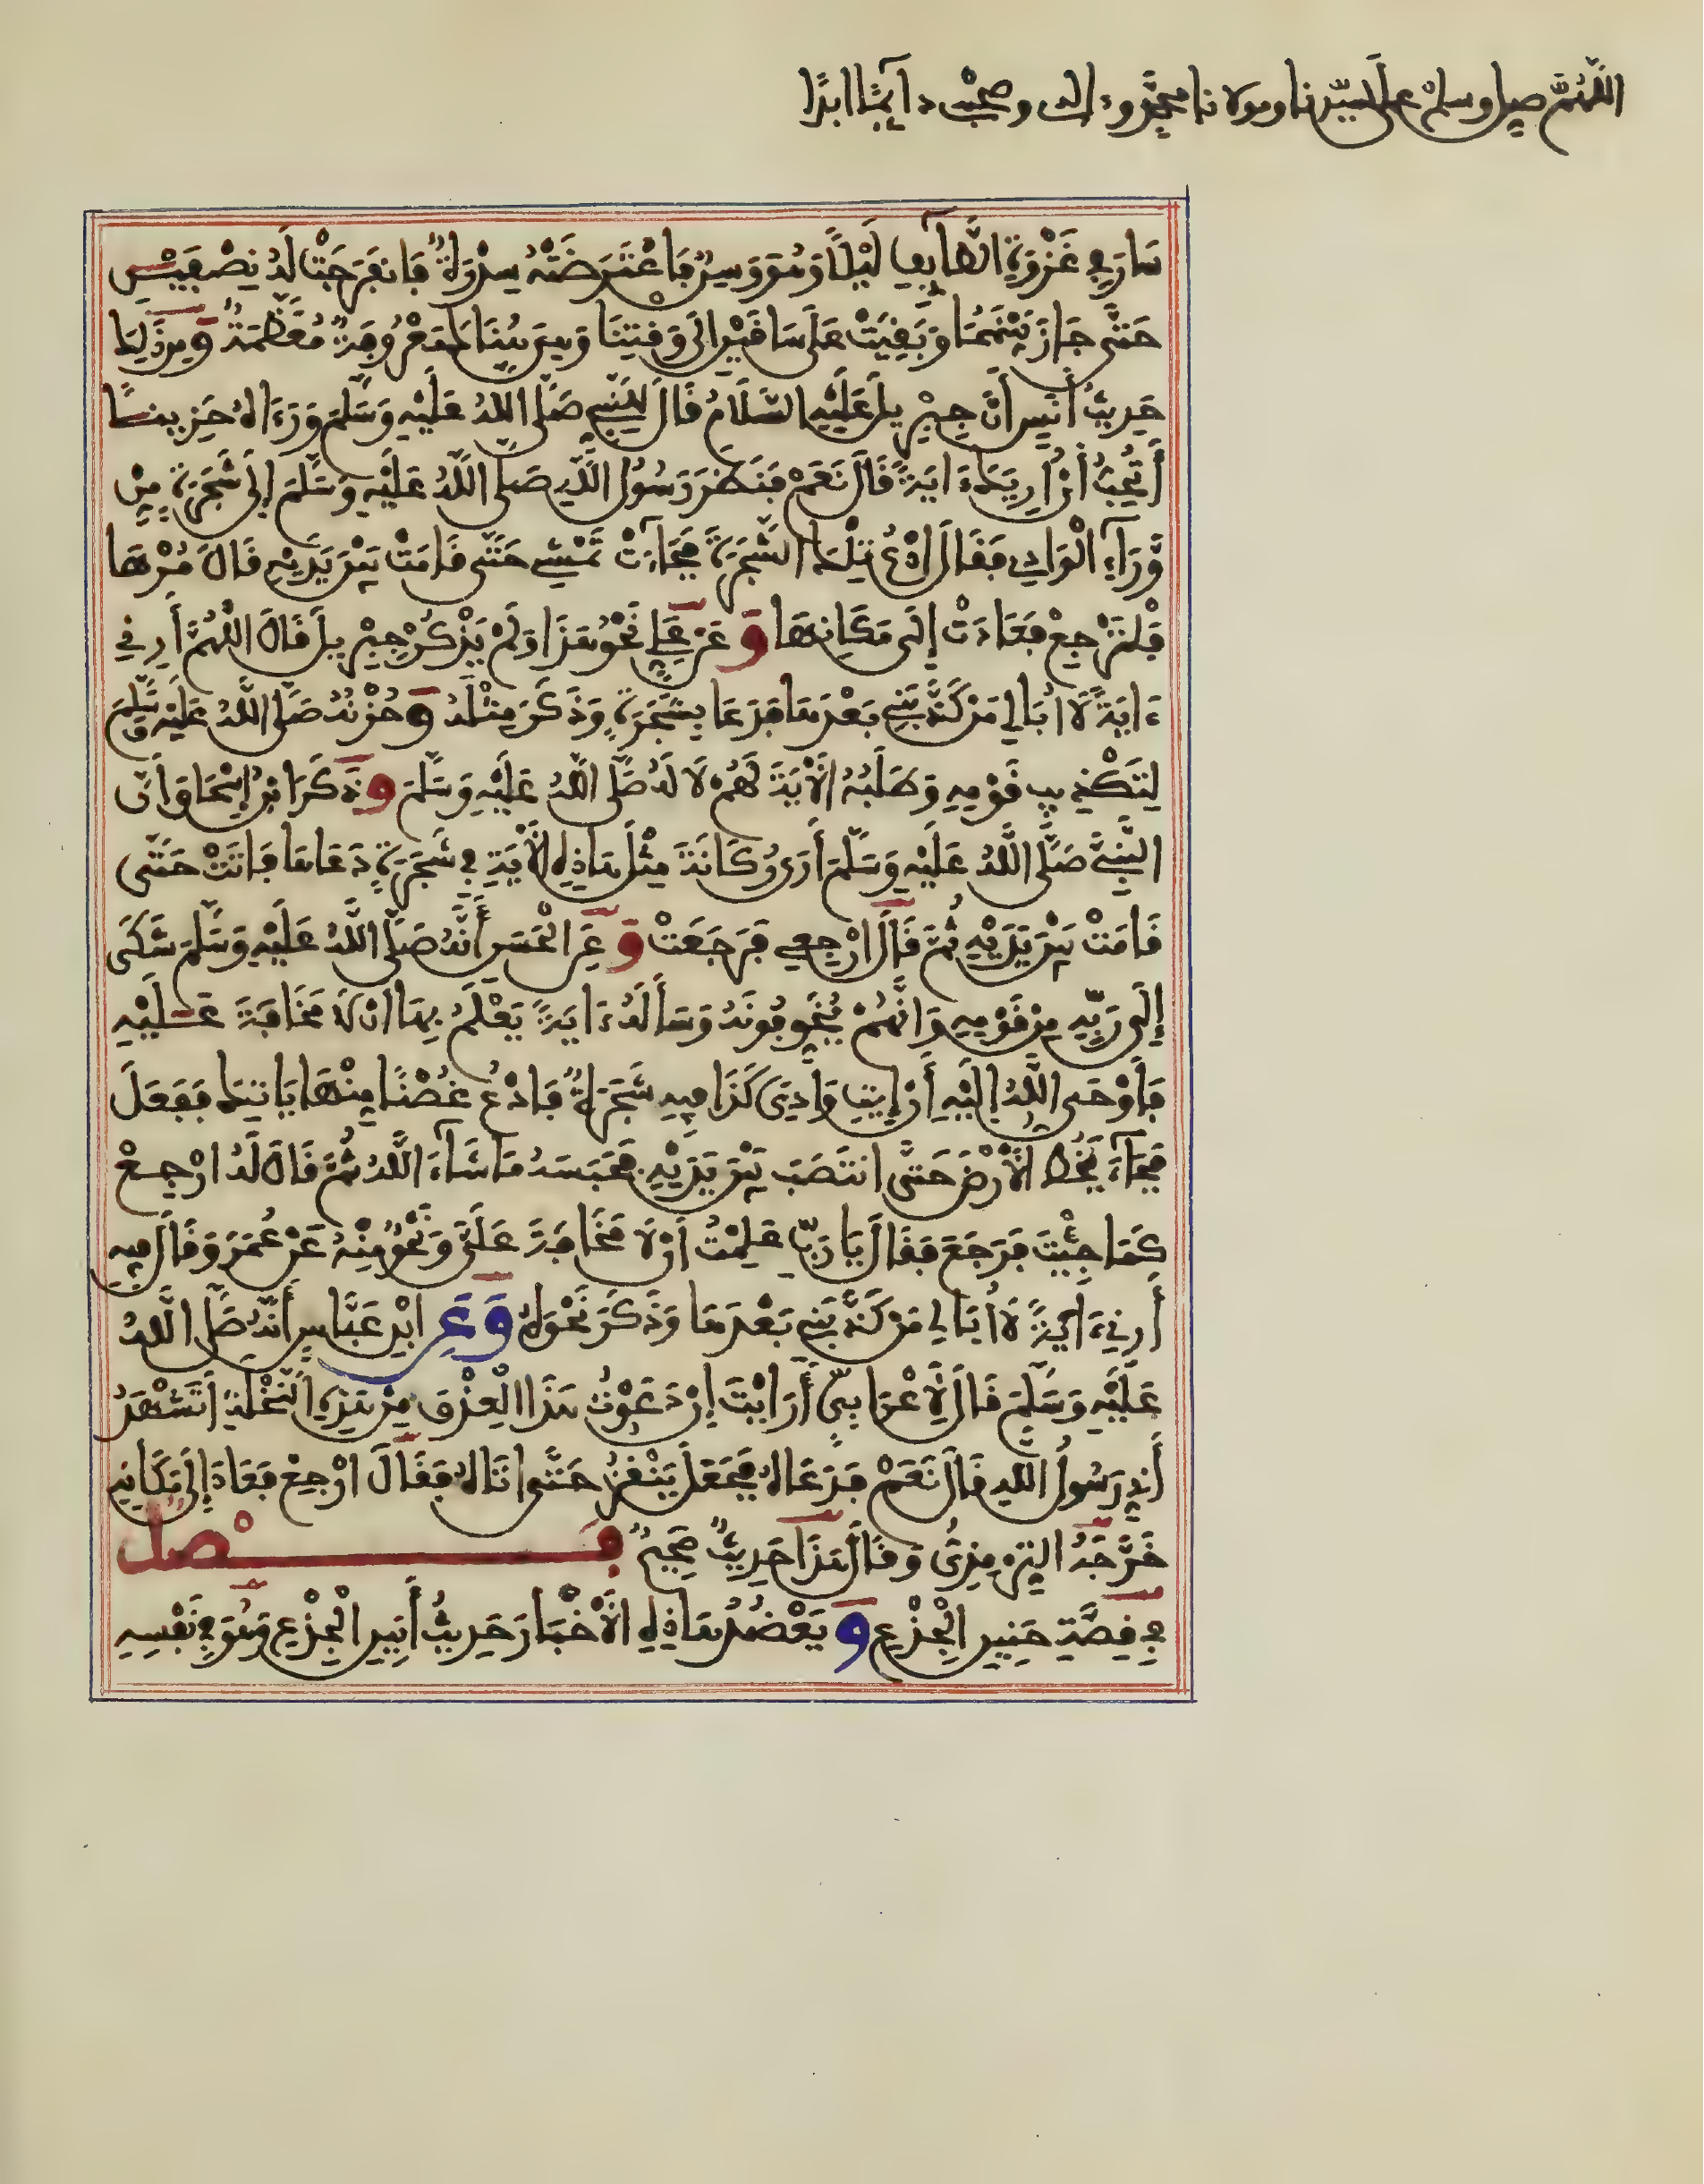 اللَّهُمَّ صل وسلم على سيّدنا ومولانا محمّد وءاله وصحبه دآئما ابدًا
سَارَ فِي غَزْوَةِ الطَّآيِفِ لَيْلًا وَهُوَ وَسِنٌ فَاعْتَرَضَتْهُ سِدْرَةٌ فَانفَرَجَتْ لَهُ نِصْفَيْنِ
حَتَّى جَازَ بَيْنَهُمَا وَبَقِيَتْ عَلَى سَاقَيْنِ إِلَى وَقْتِنَا وَهِيَ هُنَاكَ مَعْرُوفَةٌ مُعَظَّمَةٌ وَمِن ذَلِكَ
حَدِيثُ أَنَسٍ أَنَّ جِبْرِيلَ عَلَيْهِ السَّلَامُ قَالَ لِلنَّبِيِّ صَلَّى اللَّهُ عَلَيْهِ وَسَلَّمَ وَرَءَاهُ حَزِينًا
أَتُحِبُّ أَنْ أُرِيَكَ ءَايَةً قَالَ نَعَمْ فَنَظَرَ رَسُولُ اللَّهِ صَلَّى اللَّهُ عَلَيْهِ وَسَلَّمَ إِلَى شَجَرَةٍ مِنْ
وَّرَآءِ الْوَادِي فَقَالَ ادْعُ تِلْكَ الشَّجَرَةَ فَجَآءَتْ تَمْشِي حَتَّى قَامَتْ بَيْنَ يَدَيْهِ قَالَ مُرْهَا
فَلْتَرْجِعْ فَعَادَتْ إِلَى مَكَانِهَا وَعَنْ عَلِيٍّ نَحْوُ هَذَا وَلَمْ يَذْكُرْ جِبْرِيلَ قَالَ اللَّهُمَّ أَرِنِي
ءَايَةً لَا أُبَالِي مَن كَذَّبَنِي بَعْدَهَا فَدَعَا بِشَجَرَةٍ وَذَكَرَ مِثْلَهُ وَحُزْنُهُ صَلَّى اللَّهُ عَلَيْهِ وَسَلَّمَ
لِتَكْذِيبِ قَوْمِهِ وَطَلَبُهُ الْأَيَةَ لَهُمْ لَا لَهُ صَلَّى اللَّهُ عَلَيْهِ وَسَلَّمَ وَذَكَرَ ابْنُ إِسْحَاقَ أَنَّ
النَّبِيَّ صَلَّى اللَّهُ عَلَيْهِ وَسَلَّمَ أَرَى رُكَانَةَ مِثْلَ هَاذِهِ الْأَيَةِ فِي شَجَرَةٍ دَعَاهَا فَأَتَتْ حَتَّى
قَامَتْ بَيْنَ يَدَيْهِ ثُمَّ قَالَ ارْجِعِي فَرَجَعَتْ وَعَنِ الْحَسَنِ أَنَّهُ صَلَّى اللَّهُ عَلَيْهِ وَسَلَّمَ شَكَى
إِلَى رَبِّهِ مِن قَوْمِهِ وَأَنَّهُمْ يُخَوِّفُونَهُ وَسَأَلَهُ ءَايَةً يَعْلَمُ بِهَا أَن لَّا مَخَافَةَ عَلَيْهِ
فَأَوْحَى اللَّهُ إِلَيْهِ أَنْ إِيتِ وَادِيَ كَذَا فِيهِ شَجَرَةٌ فَادْعُ غُصْنًا مِنْهَا يَاتِيكَ فَفَعَلَ
فَجَآءَ يَخُطُّ الْأَرْضَ حَتَّى انتَصَبَ بَيْنَ يَدَيْهِ فَحَبَسَهُ مَا شَآءَ اللَّهُ ثُمَّ قَالَ لَهُ ارْجِعْ
كَمَا جِئْتَ فَرَجَعَ فَقَالَ يَا رَبِّ عَلِمْتُ أَن لَا مَخَافَةَ عَلَيَّ وَنَحْوٌ مِنْهُ عَنْ عُمَرَ وَقَالَ فِيهِ
أَرِنِي ءَايَةً لَا أُبَالِي مَن كَذَّبَنِي بَعْدَهَا وَذَكَرَ نَحْوَهُ وَعَنِ ابْنِ عَبَّاسٍ أَنَّهُ صَلَّى اللَّهُ
عَلَيْهِ وَسَلَّمَ قَالَ لِأَعْرَابِيٍّ أَرَايْتَ إِن دَعَوْتُ هَذَا الْعِذْقَ مِنْ هَذِهِ النَّخْلَةِ أَتَشْهَدُ
أَنِّي رَسُولُ اللَّهِ قَالَ نَعَمْ فَدَعَاهُ فَجَعَلَ يَنْقُزُ حَتَّى أَتَاهُ فَقَالَ ارْجِعْ فَعَادَ إِلَى مَكَانِهِ
خَرَّجَهُ التِّرْمِذِيُّ وَقَالَ هَذَا حَدِيثٌ صَحِيحٌ فَصْلٌ
فِي قِصَّةِ حَنِينِ الْجِذْعِ وَيَعْضُدُ هَاذِهِ الْأَخْبَارَ حَدِيثُ أَنِينِ الْجِذْعِ وَهُوَ فِي نَفْسِهِ